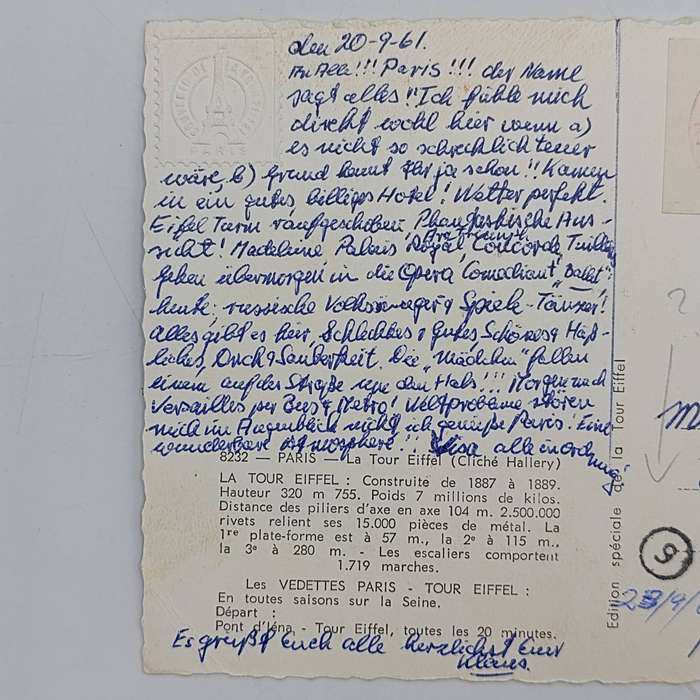 den 20-9-61.
Ihr Alle!!! Paris!!! der Name
sagt alles! Ich fühle mich
direkt wohl hier wenn a)
es nicht so schrecklich teuer
wäre, b) Grund kennt Ihr ja schon!! Kamen
in ein gutes billiges Hotel! Wetter perfekt.
Eifel Turm raufgeschoben. Phantastische Aus-
sicht! Madeleine Palais Royal Concorde
Gehen übermorgen in die Opera Comedian "Ballet"
heute: russische Volkssänger & Spiele-Tänzer!
Alles gibt es hier Schlechtes & Gutes Schönes & Häß-
liches, Dreck & Sauberkeit. Die "Mädchen" fallen
einem auf der Straße um den Hals!!! Morgen nach
Versailles per Bus & Metro! Weltprobleme stören
mich im Augenblick nicht, ich genieße Paris! Eine
wunderbare Atmosphere!! alle in Ordnung
8232 — PARIS — La Tour Eiffel (Cliché Hallery)
LA TOUR EIFFEL : Construite de 1887 à 1889.
Hauteur 320 m 755. Poids 7 millions de kilos.
Distance des piliers d'axe en axe 104 m. 2.500.000
rivets relient ses 15.000 pièces de métal. La
1re plate-forme est à 57 m., la 2e à 115 m.,
la 3e à 280 m. - Les escaliers comportent
1.719 marches.
Les VEDETTES PARIS - TOUR EIFFEL :
En toutes saisons sur la Seine.
Départ :
Pont d'Iéna - Tour Eiffel, toutes les 20 minutes.
Es grüßt Euch alle herzlichst Euer
Klaus.
Edition spéciale de la Tour Eiffel
PARIS
?
9